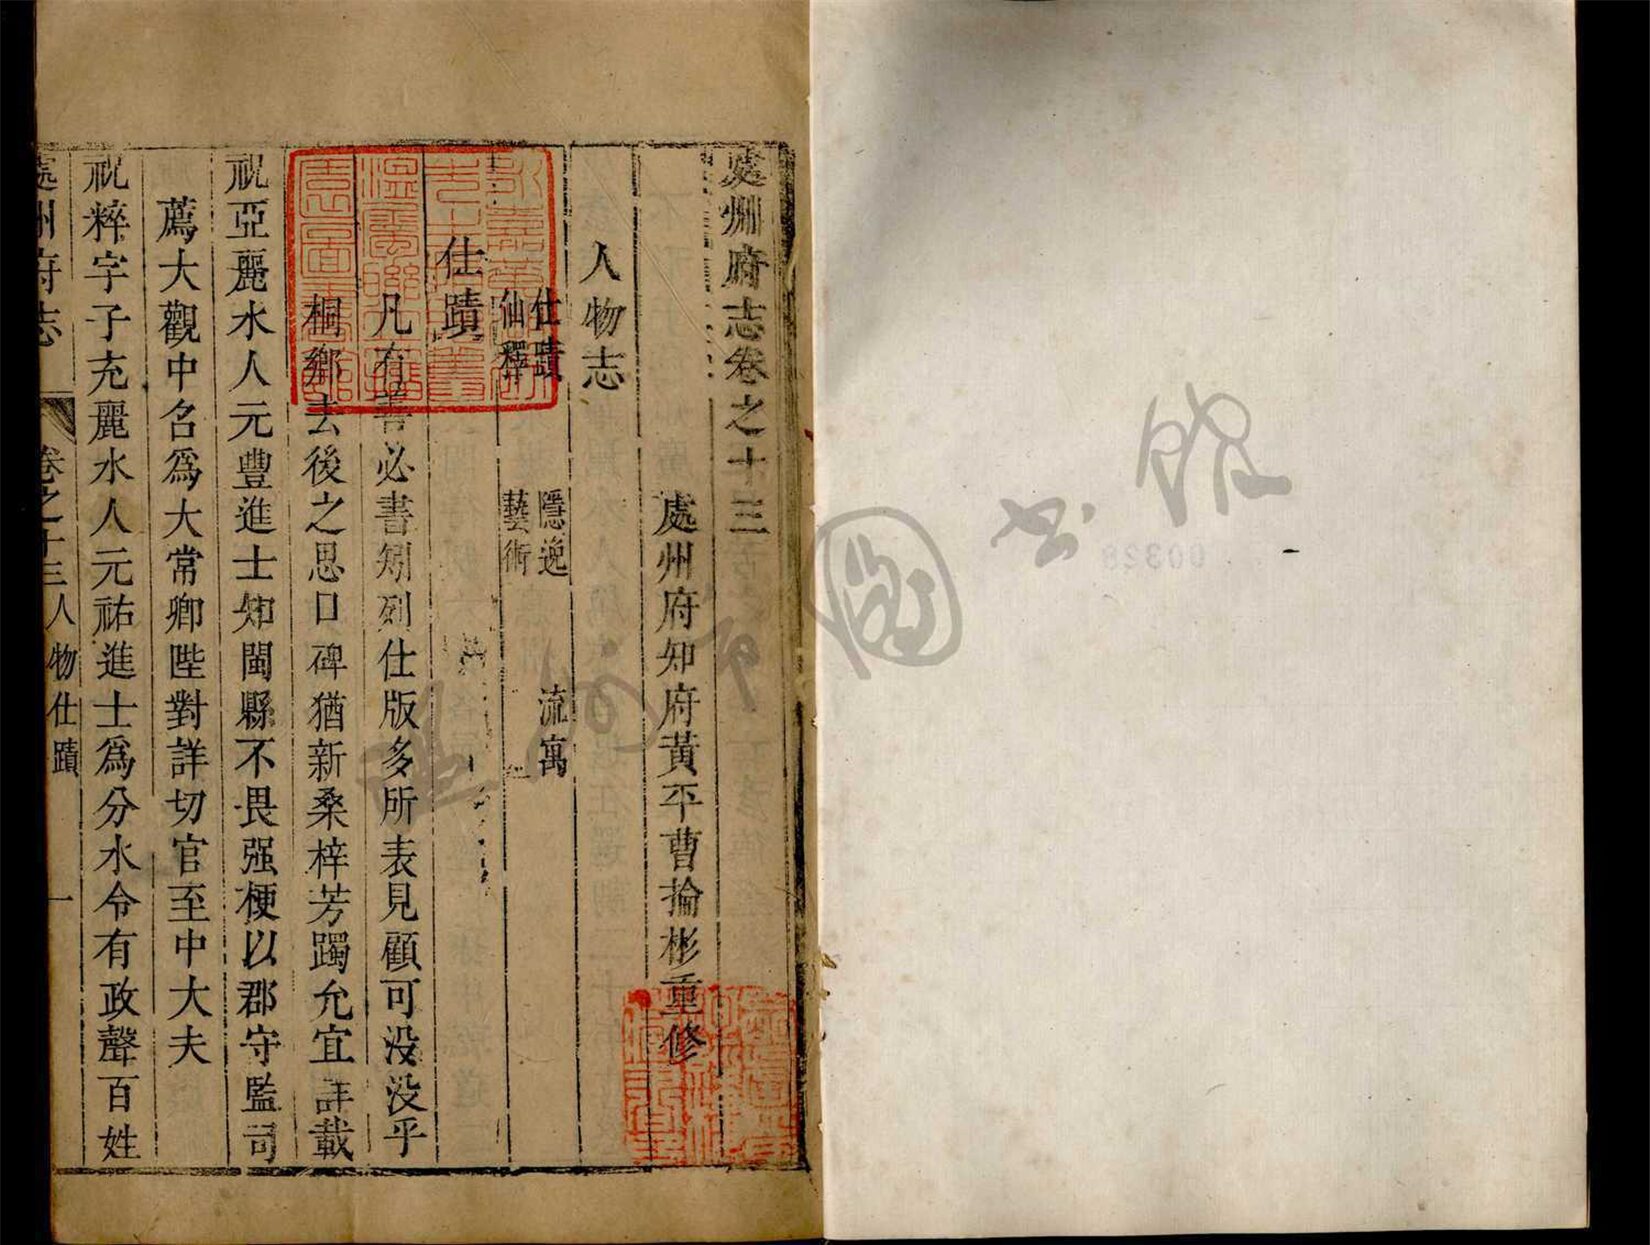 處州府志卷之十三
處州府知府黃平曹掄彬重修
人物志
仕蹟 隱逸 流寓
仙釋 藝術
仕蹟
凡有善必書矧列仕版多所表見顧可没没乎
桐鄉去後之思口碑猶新桑梓芳躅允宜詳載
祝亞麗水人元豐進士知閩縣不畏强梗以郡守監司
薦大觀中召爲大常卿陛對詳切官至中大夫
祝粹字子充麗水人元祐進士爲分水令有政聲百姓
處州府志 卷之十三 人物仕蹟 一
圖書館
00328